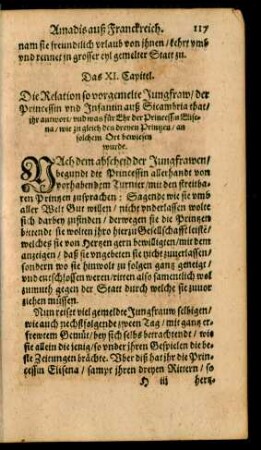 Amadis auß Franckreich. 117
nam sie freundtlich vrlaub von ihnen / kehrt vmb
vnd rennet in grosser eyl gemelter Statt zu.
Das XI. Capitel.
Die Relation so vorgemelte Jungfraw / der
Princessin vnd Infantin auß Sicambria that /
ihr antwort / vnd was für Ehr der Princessin Elise-
na / wie zu gleich den dreyen Printzen / an
solchem Ort bewiesen
wurde.
NAch dem abscheid der Jungfrawen /
begundt die Princessin allerhandt von
vorhabendem Turnier / mit den streitba-
ren Printzen zusprachen : Sagende wie sie vmb
aller Welt Gut willen / nicht vnderlassen wolte
sich darbey zufinden / derwegen sie die Printzen
bittende sie wolten jhro hierzu Gesellschafft leistē /
welches sie von Hertzen gern bewilligten / mit dem
anzeigen / daß sie vngebeten sie nicht zuuerlassen /
sondern wo sie hinwolt zu folgen gantz geneigt /
vnd entschlossen weren / ritten also samentlich wol
zumuth gegen der Statt durch welche sie zuuor
ziehen müssen.
Nun reiset viel gemeldte Jungfrauw selbigen /
wie auch nechstfolgende zween Tag / mit gantz er-
frewtem Gemüt / bey sich selbs betrachtende / wie
sie allein die jenig / so vnder ihren Gespielen die be-
ste Zeitungen brächte. Vber diß hat jhr die Prin-
cessin Elisena / sampt ihren dreyen Rittern / so
H iij hertz-